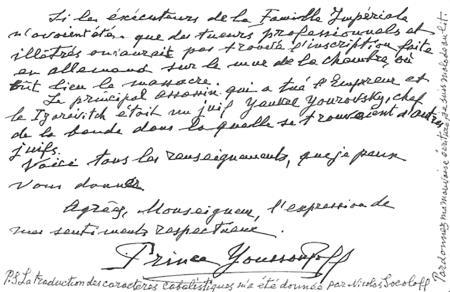 Si les éxécuteurs de la Famille Impériale
n'avaient été que des tueurs professionnels et
illétrés on aurait pas trouvé l'inscription faite
en allemand sur le mur de la chambre, où
eut lieu le massacre.
Le principal assassin qui a tué l'Empreur et
le Tzarévitch était un juif Yankel Yourovsky, chef
de la bande dans laquelle se trouvaient d'autres
juifs.
Voici tous les renseignements, que je peux
vous donner.
Agréez, Monseigneur, l'expression de
mes sentiments respectueux.
Prince Youssoupoff
P.S. La traduction des caractères cabalistiques m'a été donnée par Nicolas Socoloff.
Pardonnez ma mauvaise écriture je suis malade au lit.